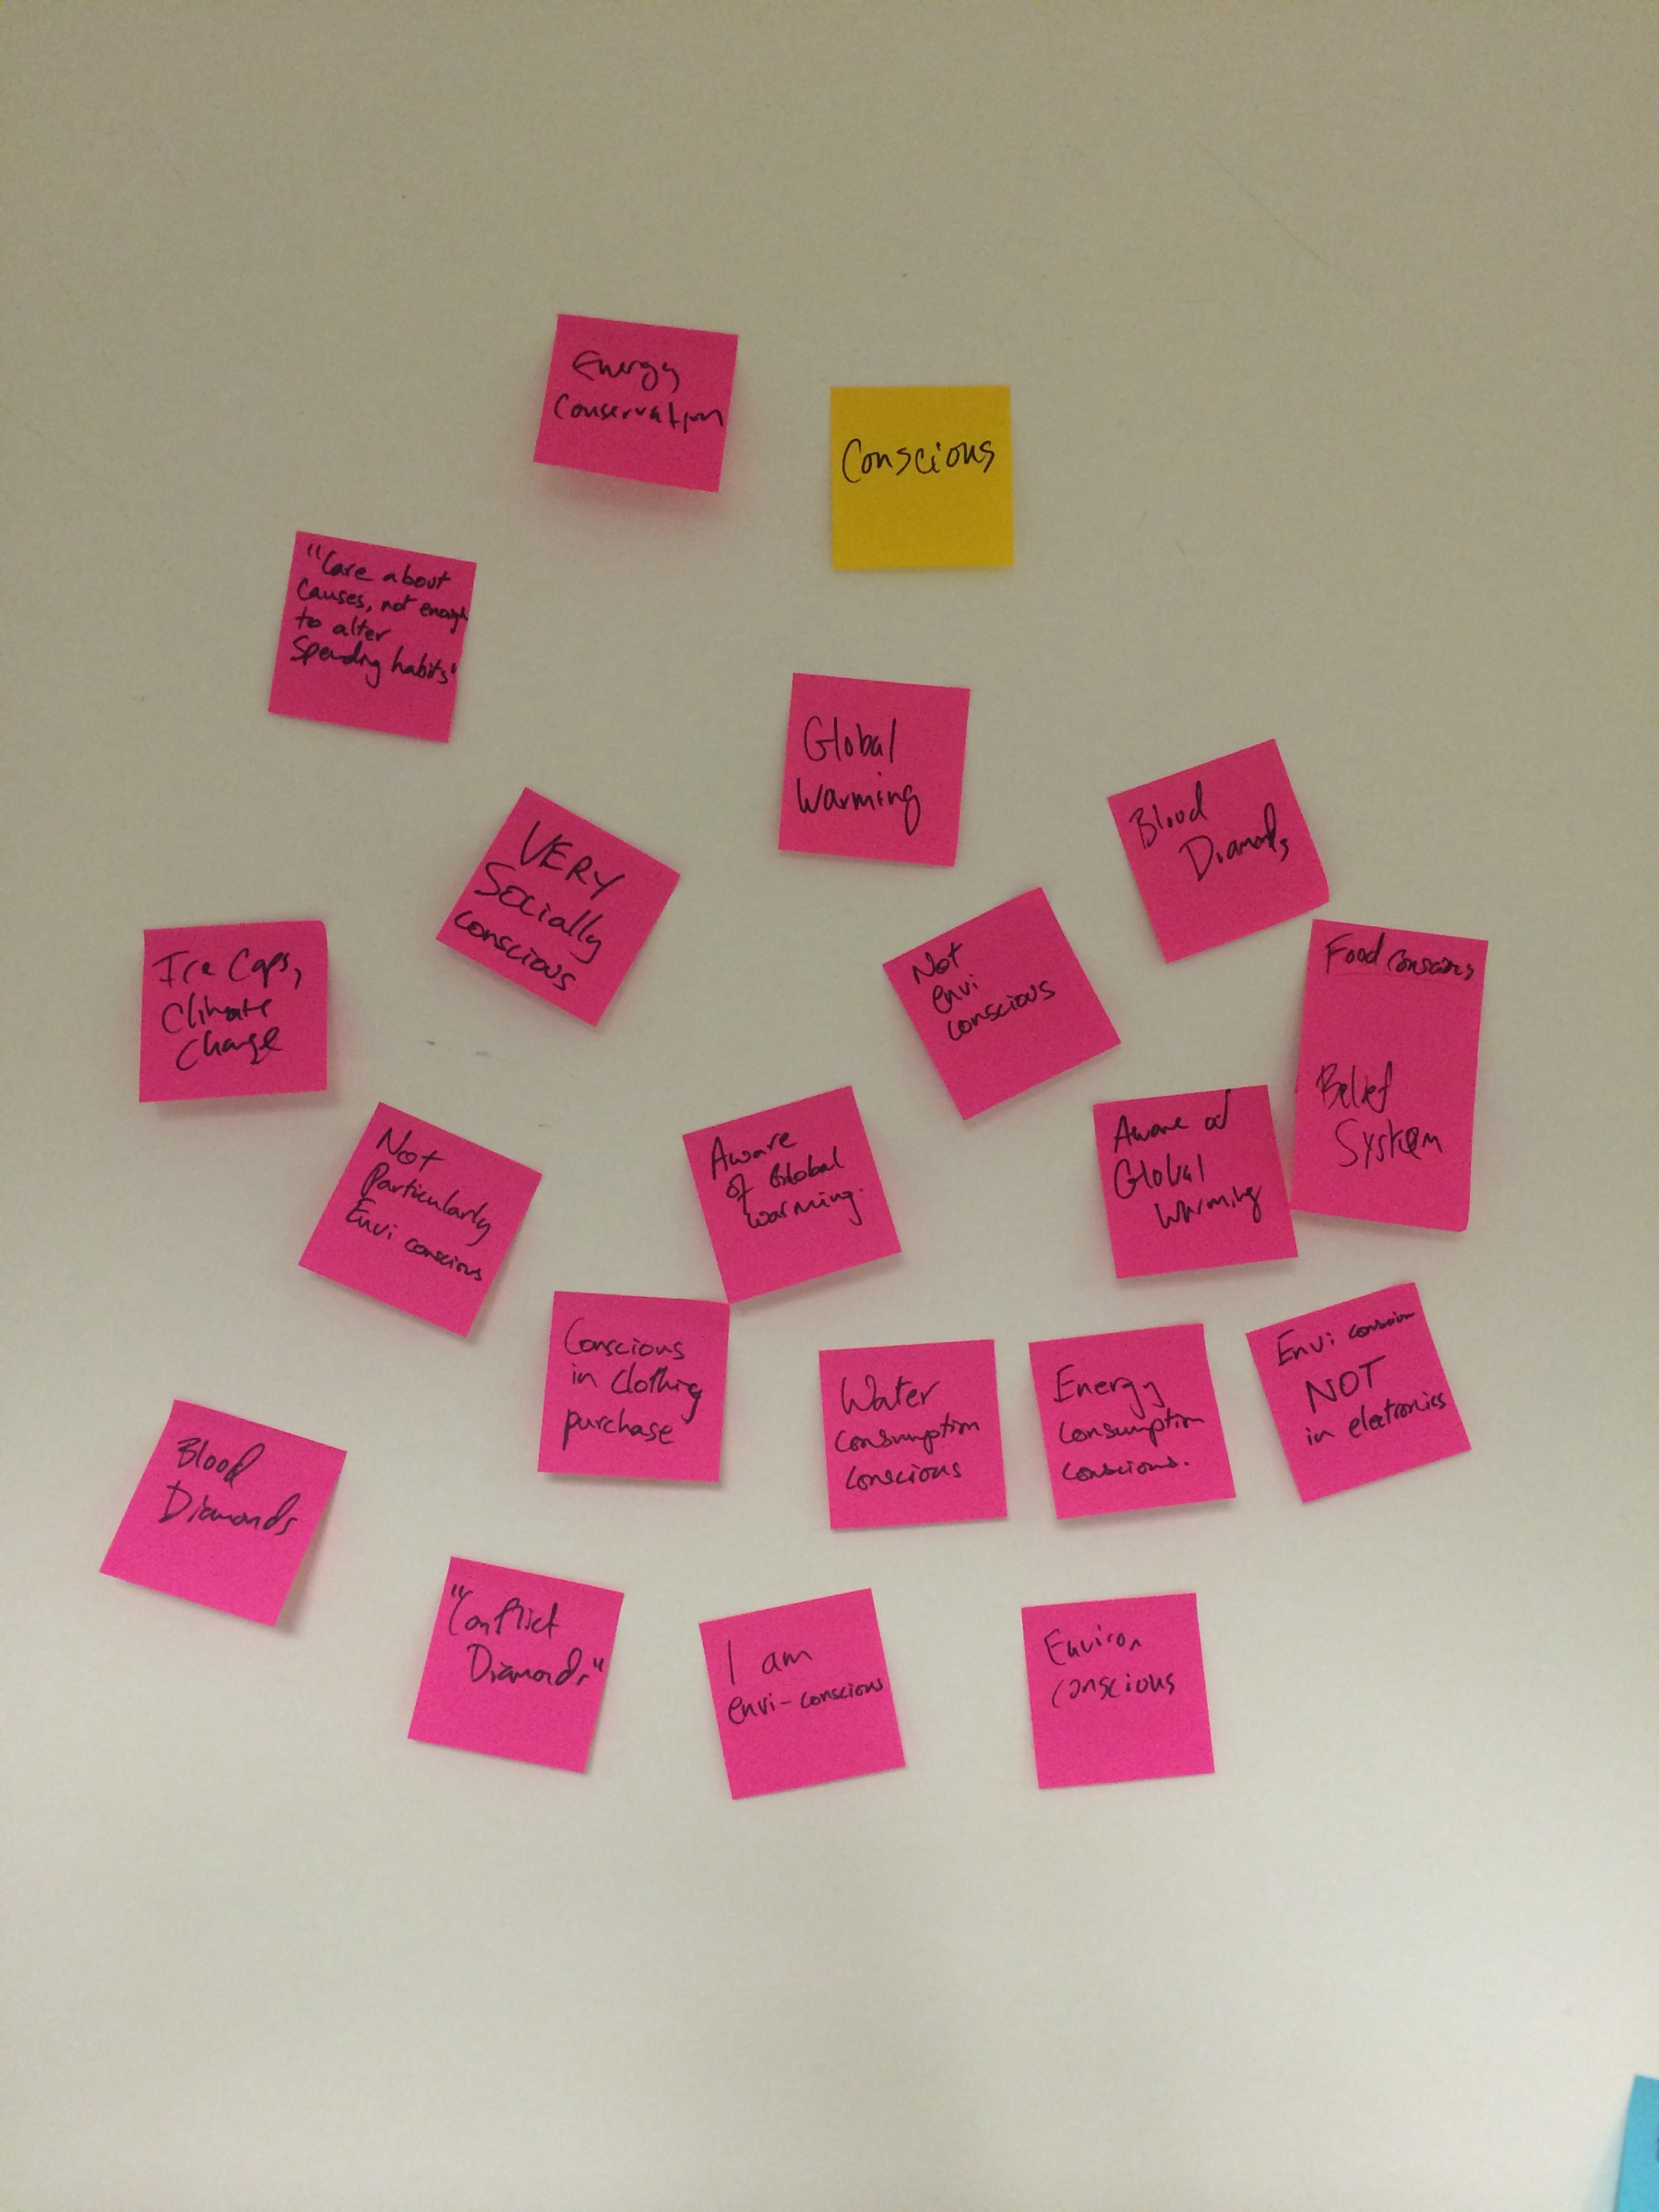 Energy
Conservation
Conscious
"Care about
Causes, not enough
to alter
Spending habits"
Global
Warming
Blood
Diamonds
VERY
Socially
conscious
Not
envi
conscious
Ice Caps,
Climate
Change
Food conscious
Belief
System
Not
Particularly
Envi conscious
Aware
of Global
warming.
Aware of
Global
Warming
Conscious
in clothing
purchase
Water
consumption
conscious
Energy
consumption
conscious.
Envi conscious
NOT
in electronics
Blood
Diamonds
"Conflict
Diamonds"
I am
envi-conscious
Environ
conscious